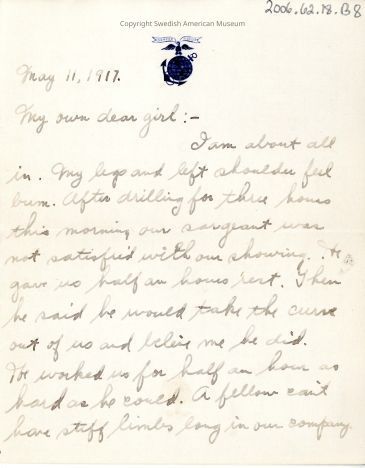 Copyright Swedish American Museum
2006.62.18.B8
May 11, 1917.
My own dear girl:-
I am about all
in. My legs and left shoulder feel
bum. After drilling for three hours
this morning our sargeant was
not satisfied with our showing. He
gave us half an hours rest. Then
he said he would take the curve
out of us and beleive me he did.
He worked us for half an hour as
hard as he could. A fellow can't
have stiff limbs long in our company.